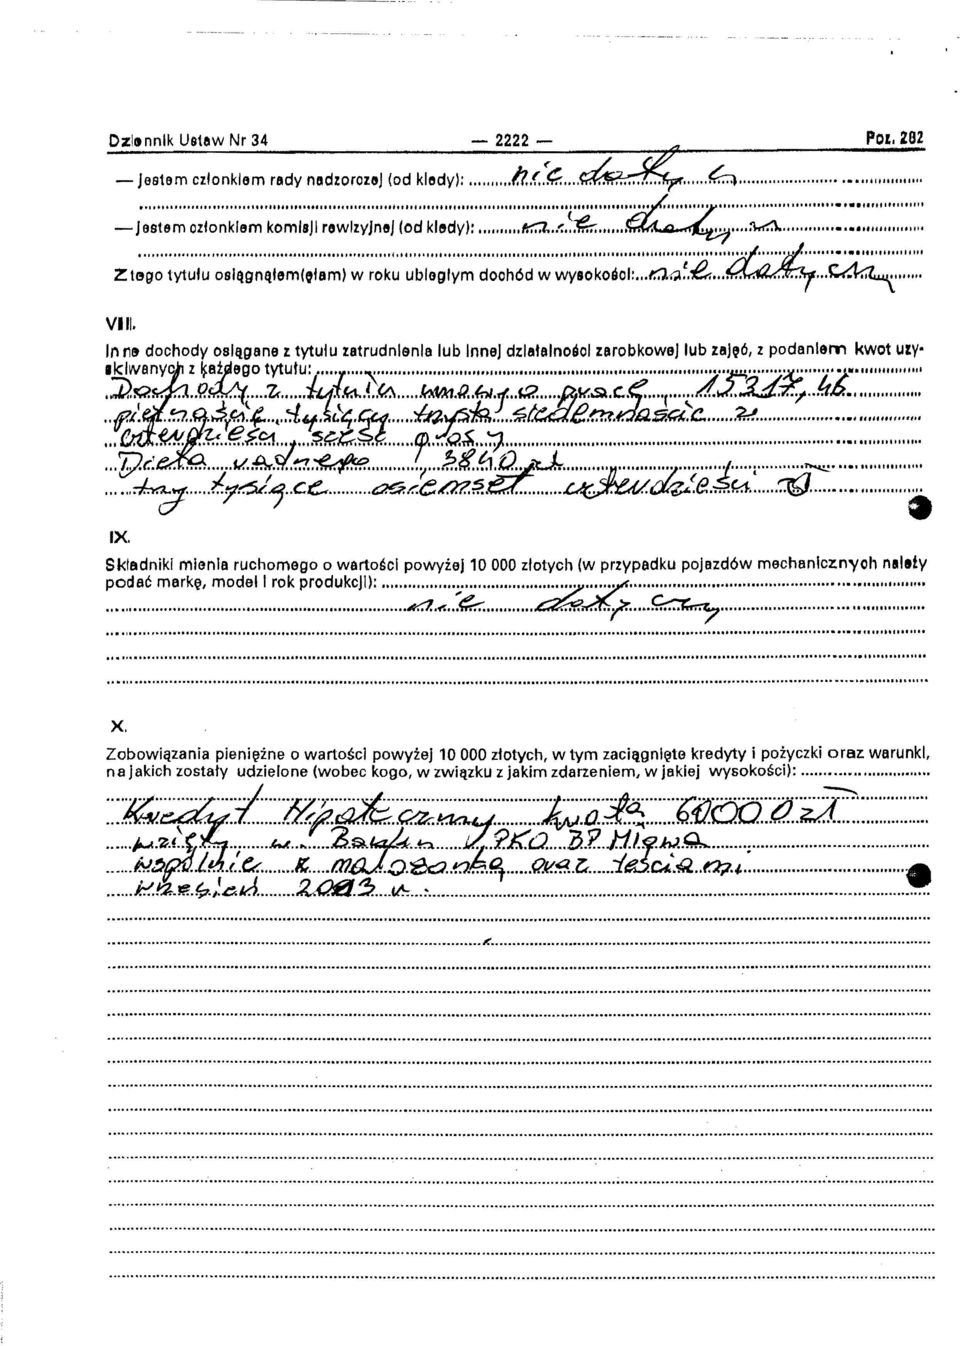 Dziennik Ustaw Nr 34 — 2222 — Poz. 282
— jestem członkiem rady nadzorczej (od kiedy): nie dotyczy
— jestem członkiem komisji rewizyjnej (od kiedy): nie dotyczy
Z tego tytułu osiągnąłem(ęłam) w roku ubiegłym dochód w wysokości: nie dotyczy
VIII.
Inne dochody osiągane z tytułu zatrudnienia lub innej działalności zarobkowej lub zajęć, z podaniem kwot uzy-
skiwanych z każdego tytułu:
Dochody z tytułu umowy o pracę, 15317,46
piętnaście tysięcy trzysta siedemnaście zł
czterdzieści sześć groszy
Dieta radnego 3840 zł
trzy tysiące osiemset czterdzieści zł
IX.
Składniki mienia ruchomego o wartości powyżej 10 000 złotych (w przypadku pojazdów mechanicznych należy
podać markę, model i rok produkcji):
nie dotyczy
X.
Zobowiązania pieniężne o wartości powyżej 10 000 złotych, w tym zaciągnięte kredyty i pożyczki oraz warunki,
na jakich zostały udzielone (wobec kogo, w związku z jakim zdarzeniem, w jakiej wysokości):
Kredyt Hipoteczny kwota 60000 zł
wzięty w Banku PKO BP Mława
wspólnie z małożonką oraz teściami
wrzesień 2003 r.